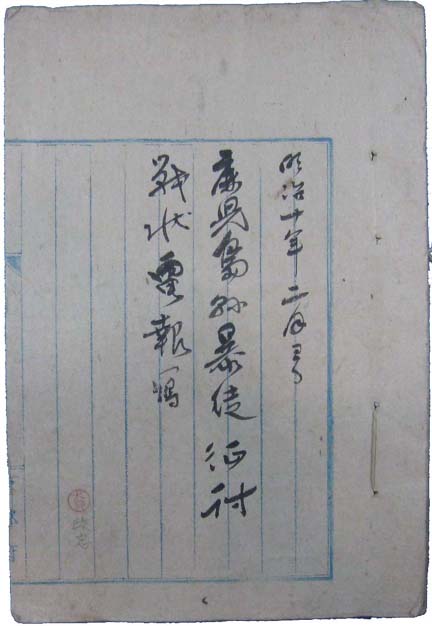 明治十年二月ヨリ
鹿児島縣暴徒征討
戦状電報写